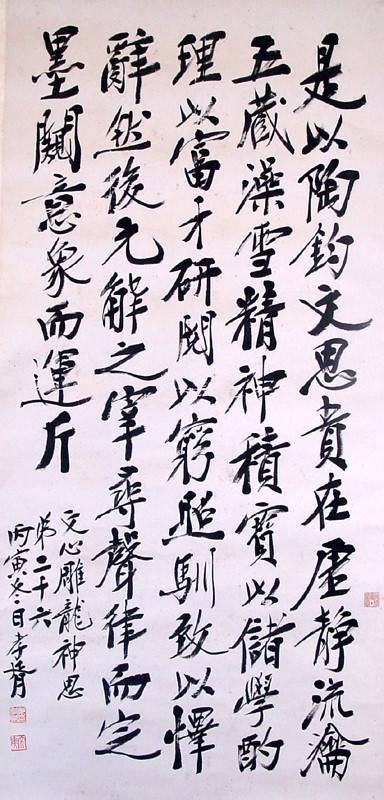 是以陶鈞文思貴在虛靜流瀹
五藏澡雪精神積寶以儲學酌
理以富才研閱以窮照馴致以懌
辭然後元解之宰尋聲律而定
墨闚意象而運斤
文心雕龍神思
弟二十六
丙寅冬日孝胥